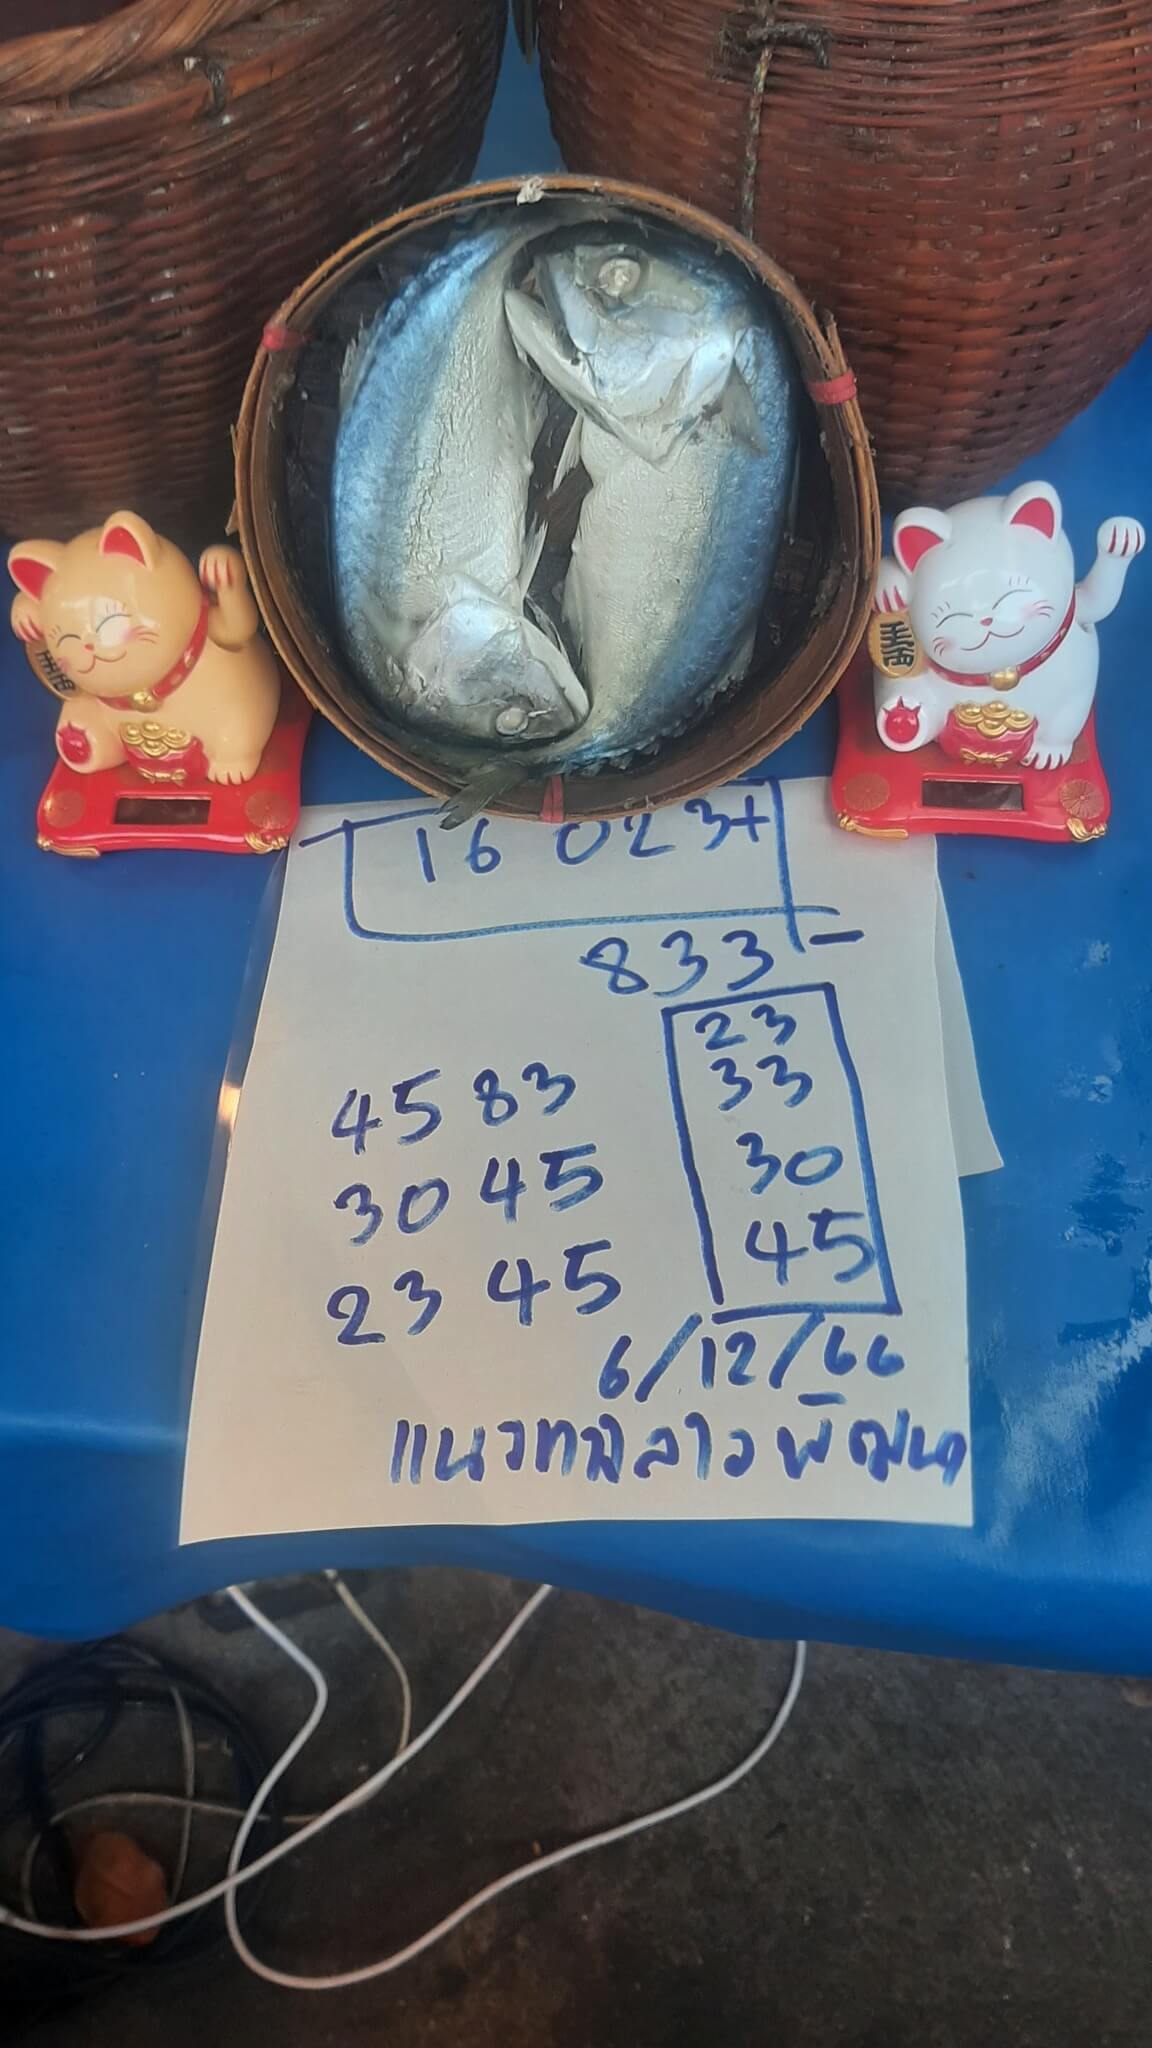 16 023+
833-
23
33
4583
30
3045
45
2345
6/12/66
แนวทางลาวพัฒนา